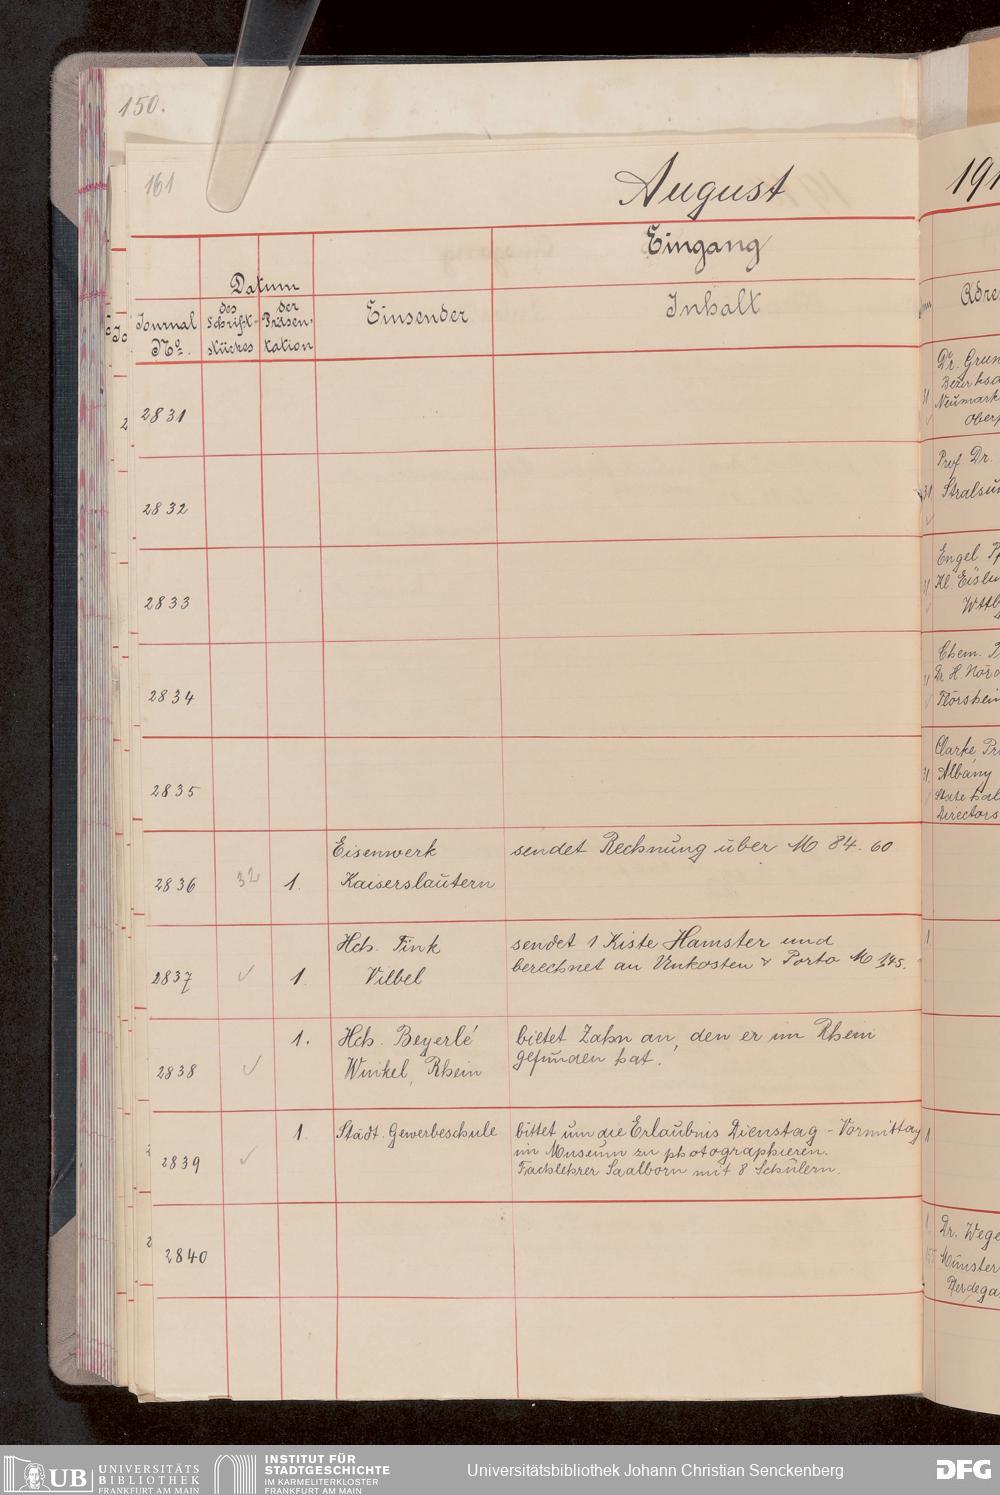 150.
161
August
191
Eingang
Datum
Journal
No.
des
Schrift-
stückes
der
Präsen-
tation
Einsender
Inhalt
2831
2832
2833
2834
2835
2836
32
1.
Eisenwerk
Kaiserslautern
sendet Rechnung über M 84.60
2837
1.
Hch. Fink
Vilbel
sendet 1 Kiste Hamster und
berechnet an Unkosten & Porto M 1,45.
2838
1.
Hch. Beyerlé
Winkel, Rhein
bietet Zahn an, den er im Rhein
gefunden hat.
2839
1
Städt. Gewerbeschule
bittet um die Erlaubnis Dienstag-Vormittag
im Museum zu photographieren.
Fachlehrer Saalborn mit 8 Schülern.
2840
Dr. Grun
Bezirksa
Neumark
Oberp
31
Prof. Dr.
Stralsu
31
Engel
Kl. Eisli
Wttb
Chem.
Dr. H. Nörd
Flörsheim
Clarke
Albany
State hal
Directors
Dr. Wege
Münster
Pferdega
UB UNIVERSITÄTS
BIBLIOTHEK
FRANKFURT AM MAIN
INSTITUT FÜR
STADTGESCHICHTE
IM KARMELITERKLOSTER
FRANKFURT AM MAIN
Universitätsbibliothek Johann Christian Senckenberg
DFG